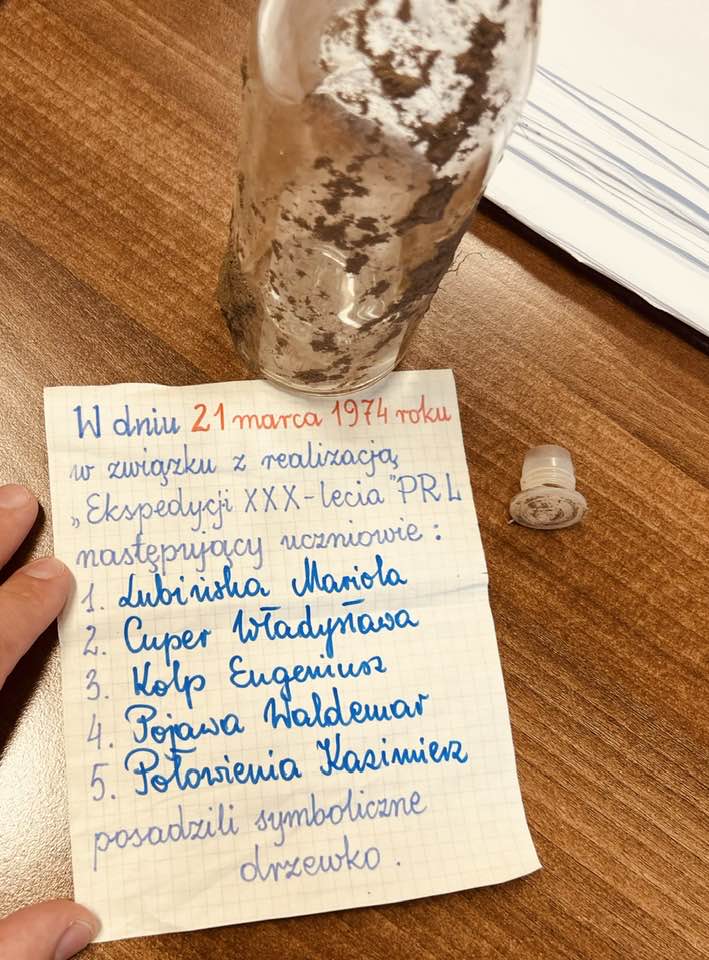 W dniu 21 marca 1974 roku
w związku z realizacją
„Ekspedycji XXX-lecia" PRL
następujący uczniowie:
1. Lubińska Mariola
2. Cuper Władysława
3. Kolp Eugeniusz
4. Pojawa Waldemar
5. Połowienia Kazimierz
posadzili symboliczne
drzewko.